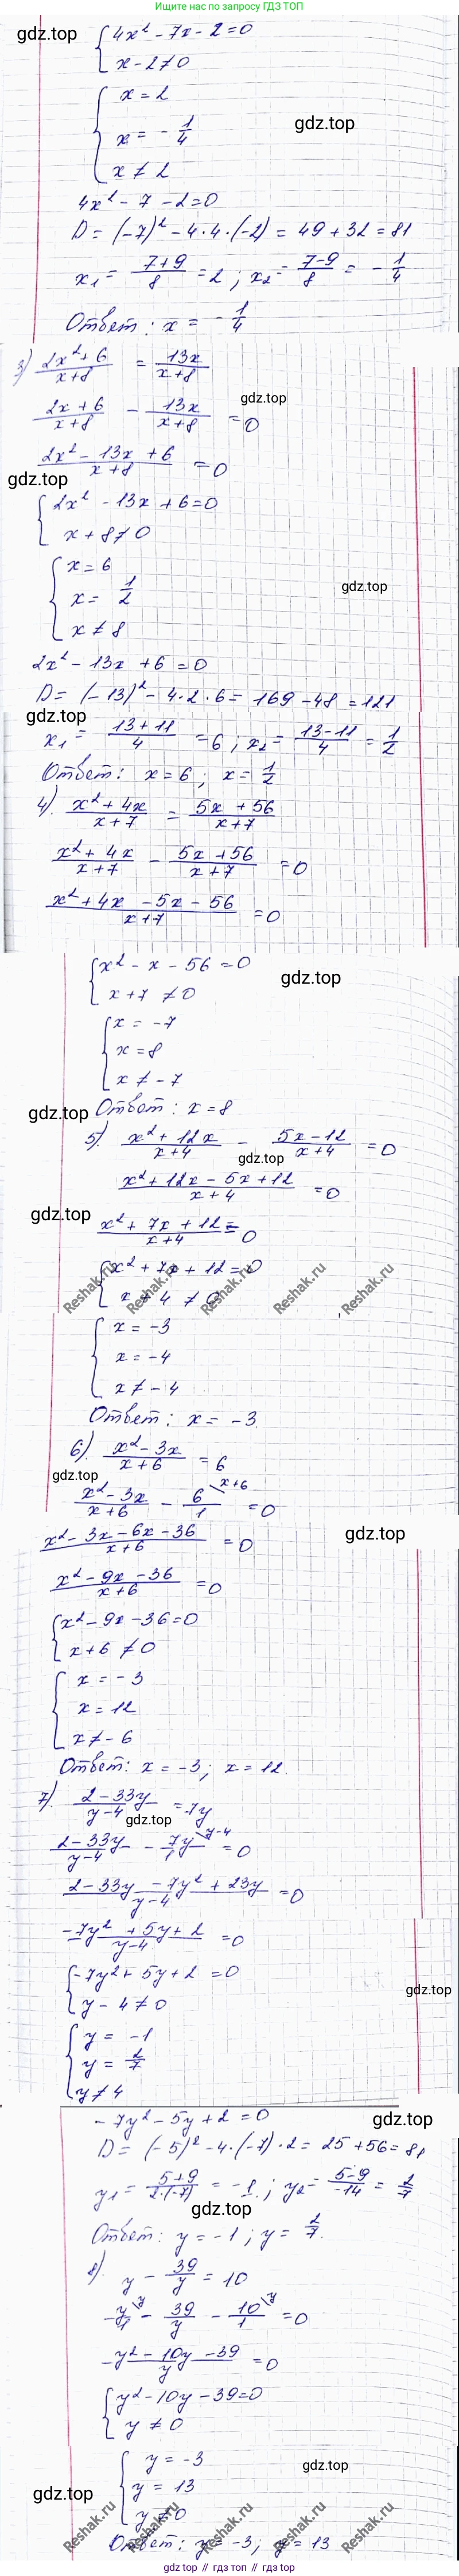 Ищите нас по запросу ГДЗ ТОП
gdz.top
4x² - 7x - 2 = 0
x - 2 ≠ 0
x = 2
x = - 1/4
gdz.top
x ≠ 2
4x² - 7 - 2 = 0
D = (-7)² - 4·4·(-2) = 49 + 32 = 81
x₁ = (7+9)/8 = 2; x₂ = (7-9)/8 = - 1/4
Ответ: x = - 1/4
3) (2x² + 6)/(x+8) = 13x/(x+8)
gdz.top
(2x + 6)/(x+8) - 13x/(x+8) = 0
(2x² - 13x + 6)/(x+8) = 0
gdz.top
2x² - 13x + 6 = 0
x + 8 ≠ 0
x = 6
gdz.top
x = 1/2
x ≠ 8
2x² - 13x + 6 = 0
D = (-13)² - 4·2·6 = 169 - 48 = 121
gdz.top
x₁ = (13+11)/4 = 6; x₂ = (13-11)/4 = 1/2
Ответ: x = 6; x = 1/2
4). (x² + 4x)/(x+7) = (5x + 56)/(x+7)
(x² + 4x)/(x+7) - (5x + 56)/(x+7) = 0
(x² + 4x - 5x - 56)/(x+7) = 0
x² - x - 56 = 0
gdz.top
x + 7 ≠ 0
x = -7
x = 8
x ≠ -7
Ответ: x = 8
gdz.top
5). (x² + 12x)/(x+4) - (5x - 12)/(x+4) = 0
gdz.top
(x² + 12x - 5x + 12)/(x+4) = 0
gdz.top
(x² + 7x + 12)/(x+4) = 0
x² + 7x + 12 = 0
x + 4 ≠ 0
Reshak.ru Reshak.ru Reshak.ru Reshak.ru Reshak.ru
x = -3
x = -4
x ≠ -4
Ответ: x = -3
6). (x² - 3x)/(x+6) = 6
gdz.top
(x² - 3x)/(x+6) - 6/1 \x+6 = 0
gdz.top
(x² - 3x - 6x - 36)/(x+6) = 0
(x² - 9x - 36)/(x+6) = 0
x² - 9x - 36 = 0
x + 6 ≠ 0
x = -3
x = 12
x ≠ -6
Ответ: x = -3; x = 12.
7). (2 - 33y)/(y-4) = 7y
gdz.top
(2 - 33y)/(y-4) - 7y/1 \y-4 = 0
(2 - 33y - 7y² + 23y)/(y-4) = 0
(-7y² + 5y + 2)/(y-4) = 0
-7y² + 5y + 2 = 0
gdz.top
y - 4 ≠ 0
y = -1
y = 2/7
y ≠ 4
-7y² - 5y + 2 = 0
gdz.top
D = (-5)² - 4·(-7)·2 = 25 + 56 = 81
y₁ = (5+9)/(2·(-7)) = -1; y₂ = (5-9)/(-14) = 2/7
gdz.top
Ответ: y = -1; y = 2/7.
8). y - 39/y = 10
y/1 \y - 39/y - 10/1 \y = 0
(y² - 10y - 39)/y = 0
y² - 10y - 39 = 0
y ≠ 0
y = -3
gdz.top
y = 13
gdz.top
y ≠ 0
Ответ: y = -3; y = 13
Reshak.ru Reshak.ru Reshak.ru Reshak.ru Reshak.ru
gdz.top // гдз топ // гдз.top